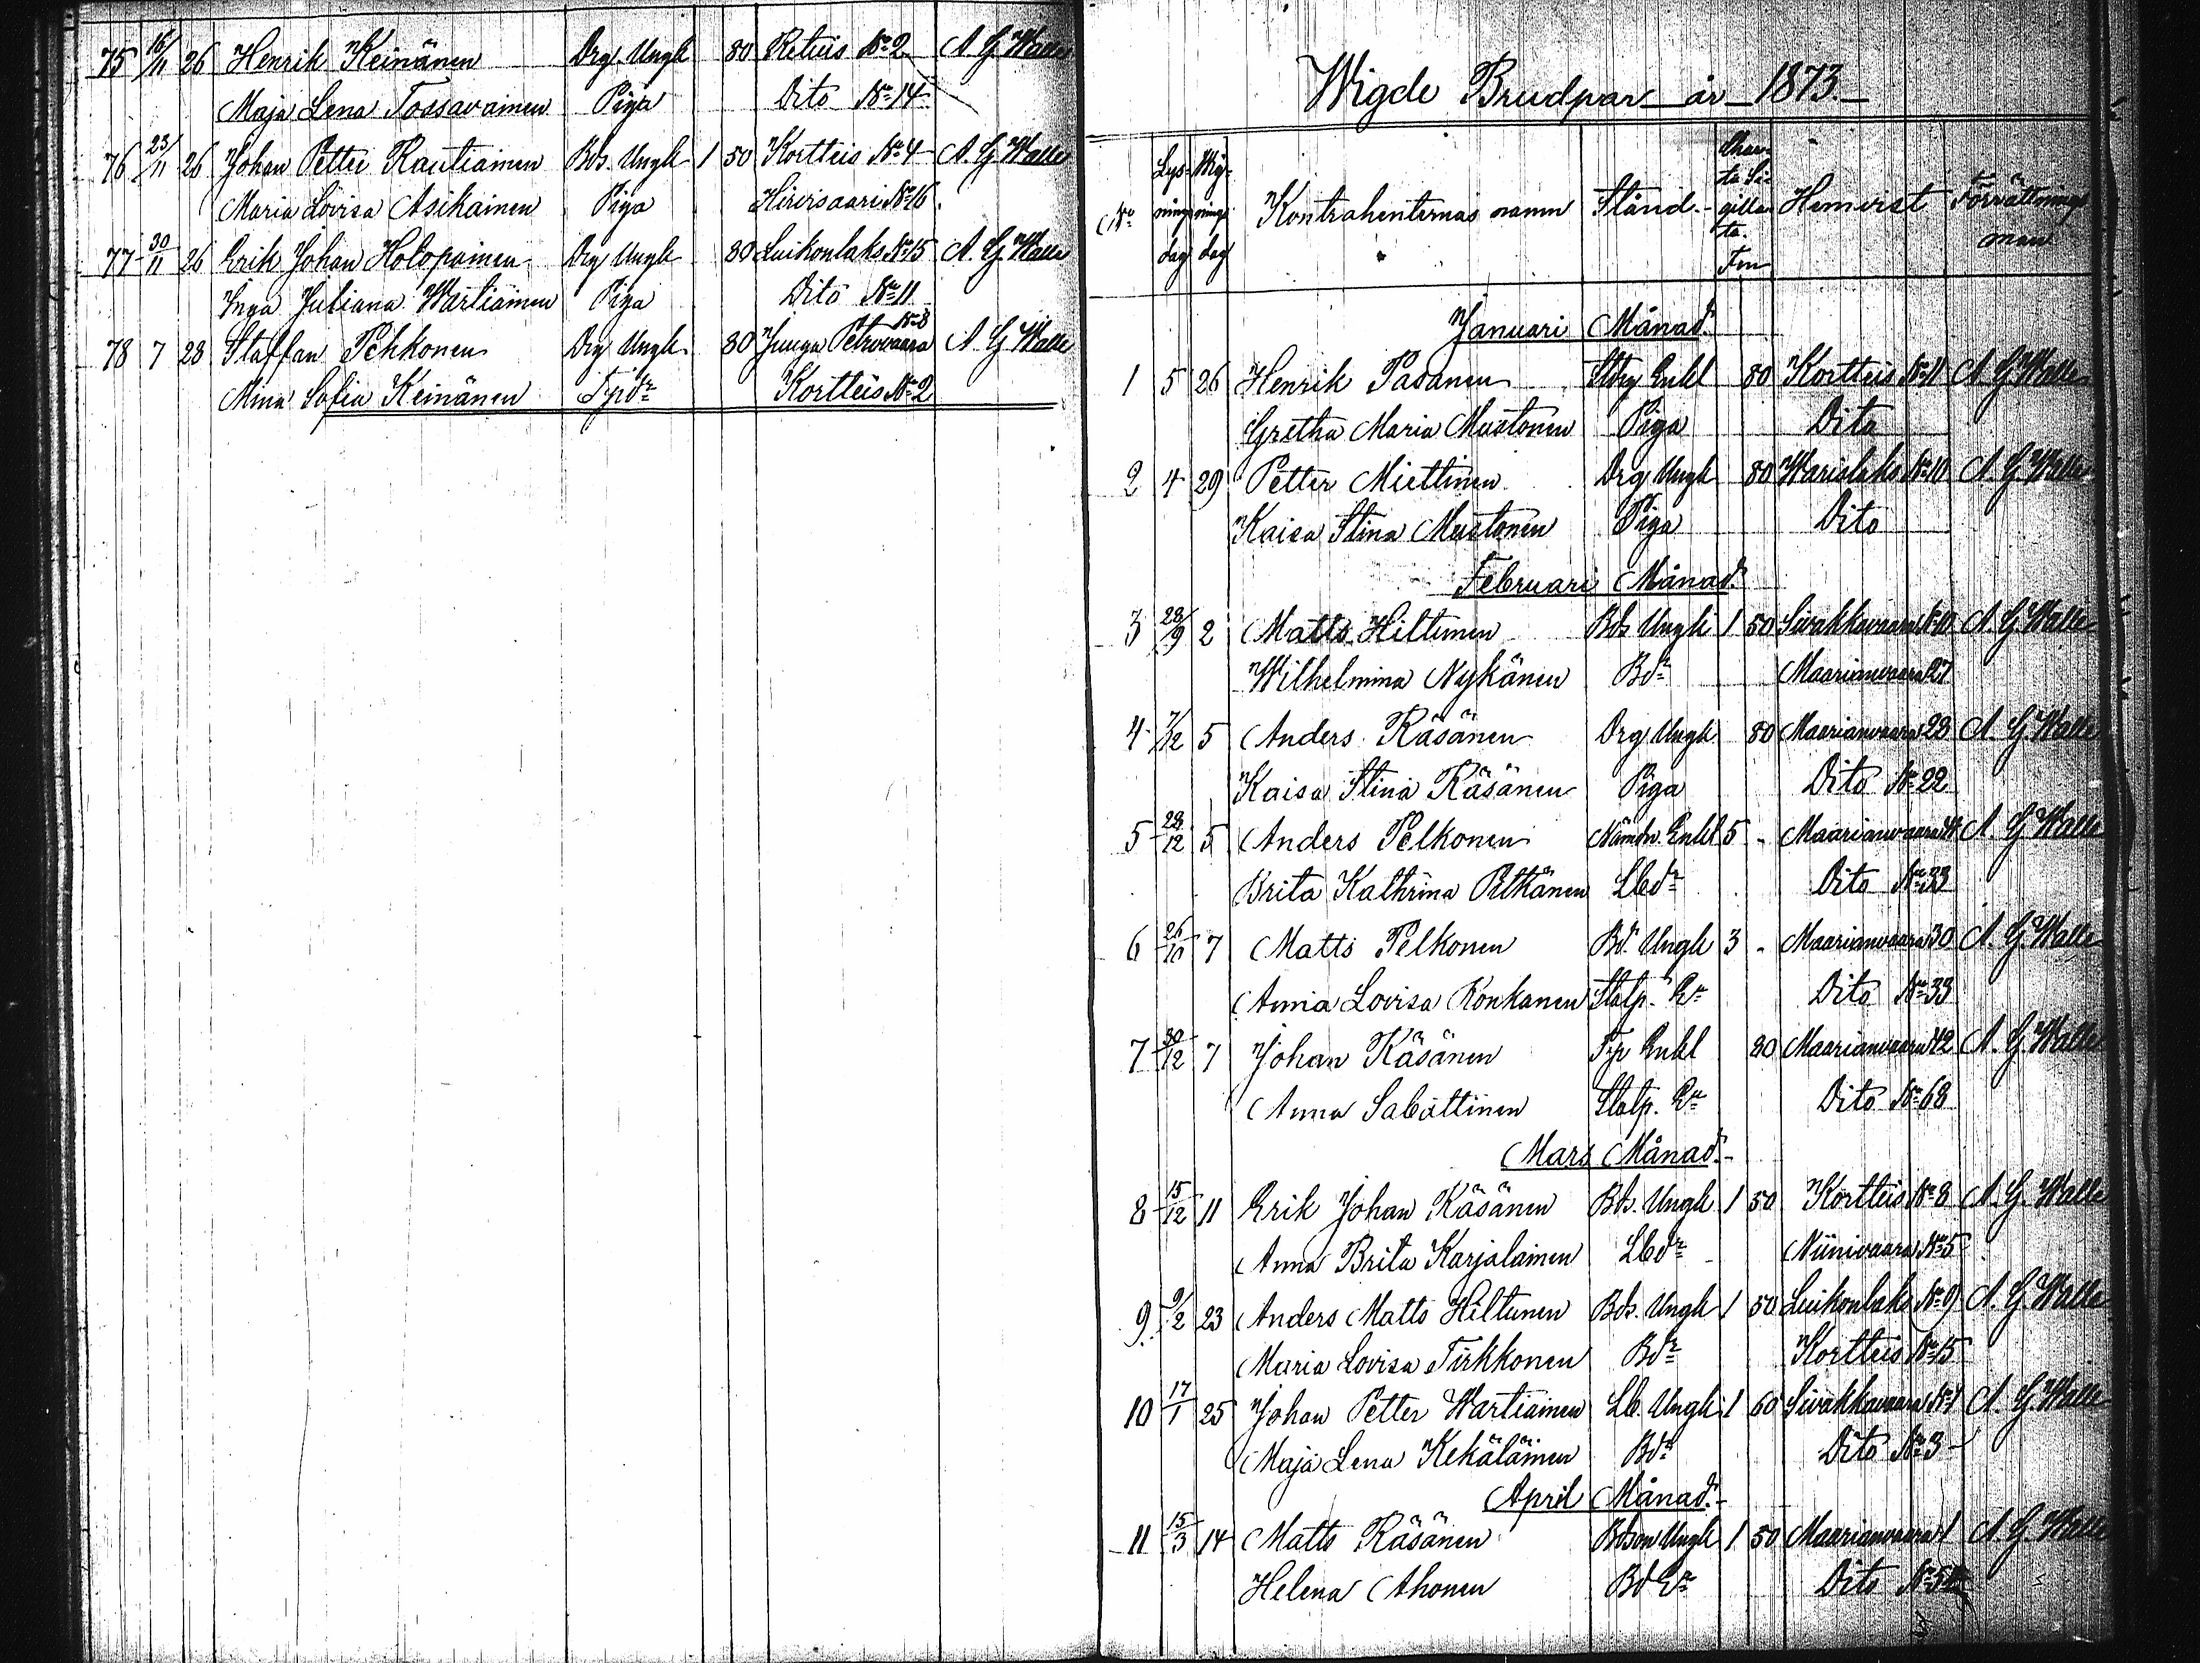 75 16/11 26 Henrik Keinänen Drg. Ungk 80 Retuis No 2 A. G. Walle
Maja Lena Tossavainen Piga Dito No 14
76 23/11 26 Johan Petter Rautiainen Bds. Ungk 1 50 Kortteis No 4 A. G. Walle
Maria Lovisa Asikainen Piga Hirvisaari No 16
77 30/11 26 Erik Johan Holopainen Drg Ungk 80 Luikonlaks No 15 A. G. Walle
Inga Juliana Wartiainen Piga Dito No 11
78 7 28 Staffan Pehkonen Drg Ungk 80 Juuga Petrovaara No 8 A. G. Walle
Mina Sofia Keinänen Tpdr Kortteis No 2
Wigde Brudpar år 1873.
No Lysningsdag Wigningsdag Kontrahenternas namn Stånd Charta Sigillata. Fm Hemvist Förrättningsman
Januari Månad.
1 5 26 Henrik Pasanen Enkl 80 Kortteis No 11 A. G. Walle
Gretha Maria Mustonen Piga Dito
2 4 29 Petter Miettinen Drg Ungk 80 Warislaks No 10 A. G. Walle
Kaisa Stina Mustonen Piga Dito
Februari Månad.
3 28/9 2 Matts Hiltunen Bds Ungk 1 50 Sivakkavaara No 10 A. G. Walle
Wilhelmina Nykänen Bdr Maarianvaara 27
4 7/12 5 Anders Räsänen Drg Ungk 80 Maarianvaara 23 A. G. Walle
Kaisa Stina Räsänen Piga Dito No 22
5 28/12 5 Anders Pelkonen Nämdn. Enkl 5 - Maarianvaara A. G. Walle
Brita Kathrina Pitkänen Lbdr Dito No 33
6 26/10 7 Matts Pelkonen Bd. Ungk 3 - Maarianvaara 30 A. G. Walle
Anna Lovisa Konkanen Statp. Er Dito No 33
7 30/12 7 Johan Räsänen Tp Enkl 80 Maarianvaara 42 A. G. Walle
Anna Sabattinen Statp. Er Dito No 68
Mars Månad.
8 15/12 11 Erik Johan Räsänen Bds. Ungk 1 50 Kortteis No 8 A. G. Walle
Anna Brita Karjalainen Lbdr Niinivaara No 5
9 9/2 23 Anders Matts Hiltunen Bds. Ungk 1 50 Luikonlaks No 9 A. G. Walle
Maria Lovisa Tirkkonen Bdr Kortteis No 15
10 17/1 25 Johan Petter Wartiainen Lb. Ungk 1 60 Sivakkavaara A. G. Walle
Maja Lena Kekäläinen Bdr Dito No 3
April Månad.
11 15/3 14 Matts Räsänen Bdson Ungk 1 50 Maarianvaara 1 A. G. Walle
Helena Ahonen Bd Er Dito